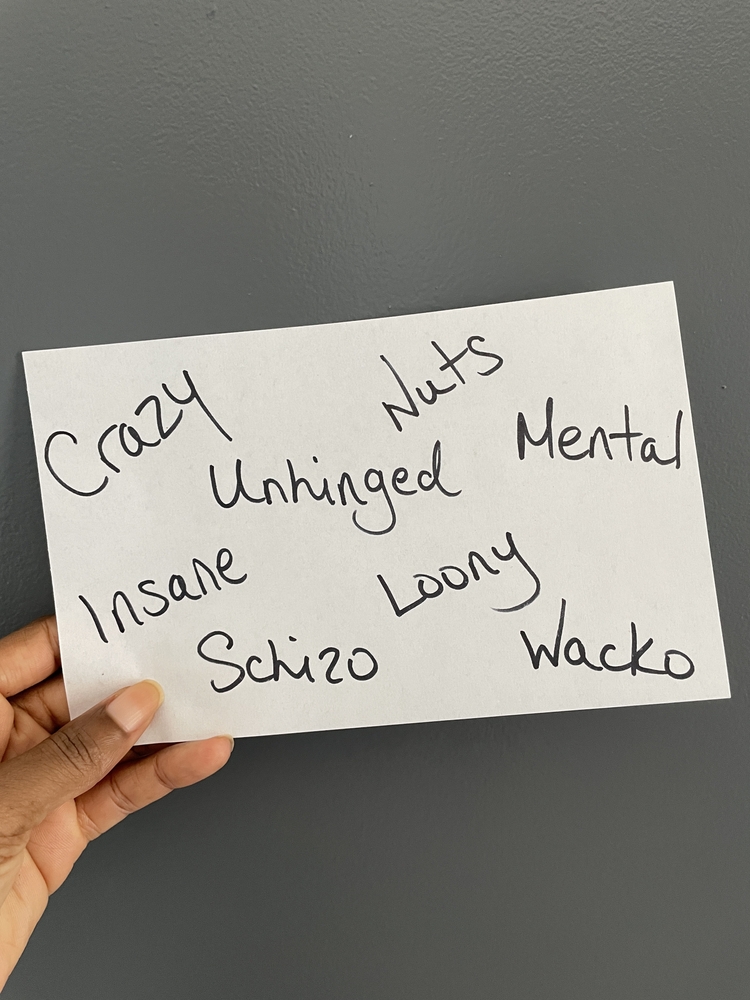 Crazy
Nuts
Mental
Unhinged
Insane
Loony
Schizo
Wacko